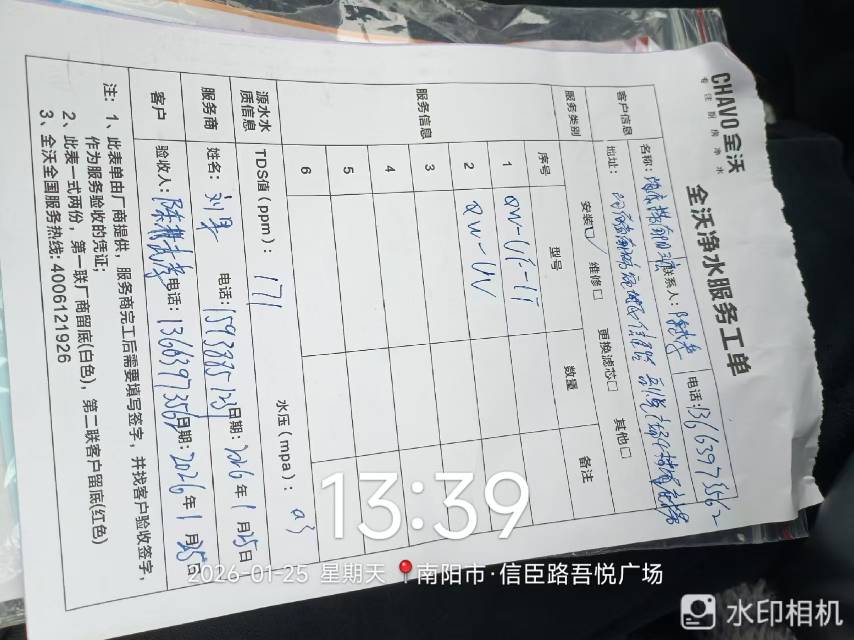 CHAVO全沃
专注厨房净水
全沃净水服务工单
客户信息
名称:
联系人: 陈
电话: 13663973562
地址:
服务类别
安装☑ 维修□ 更换滤芯□ 其他□
服务信息
序号 型号 数量 备注
1 QW-UF-1T
2 QW-UV
3
4
5
6
源水水质信息
TDS值(ppm): 171 水压(mpa): 0.3
服务商
姓名: 刘 电话: 日期: 2026年1月25日
客户
验收人: 陈 电话: 13663973562 日期: 2026年1月25日
注: 1、此表单由厂商提供, 服务商完工后需要填写签字, 并找客户验收签字,
作为服务验收的凭证;
2、此表一式两份, 第一联厂商留底(白色), 第二联客户留底(红色)
3、全沃全国服务热线: 4006121926
13:39
2026-01-25 星期天 南阳市·信臣路吾悦广场
水印相机